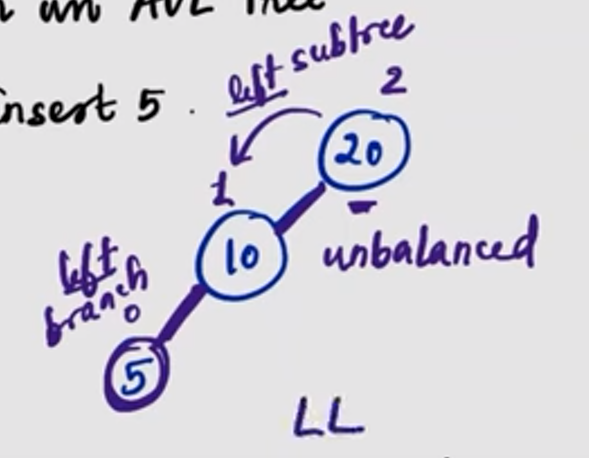 an AVL Tree
insert 5.
left subtree
2
20
1
10
unbalanced
left
branch
0
5
LL